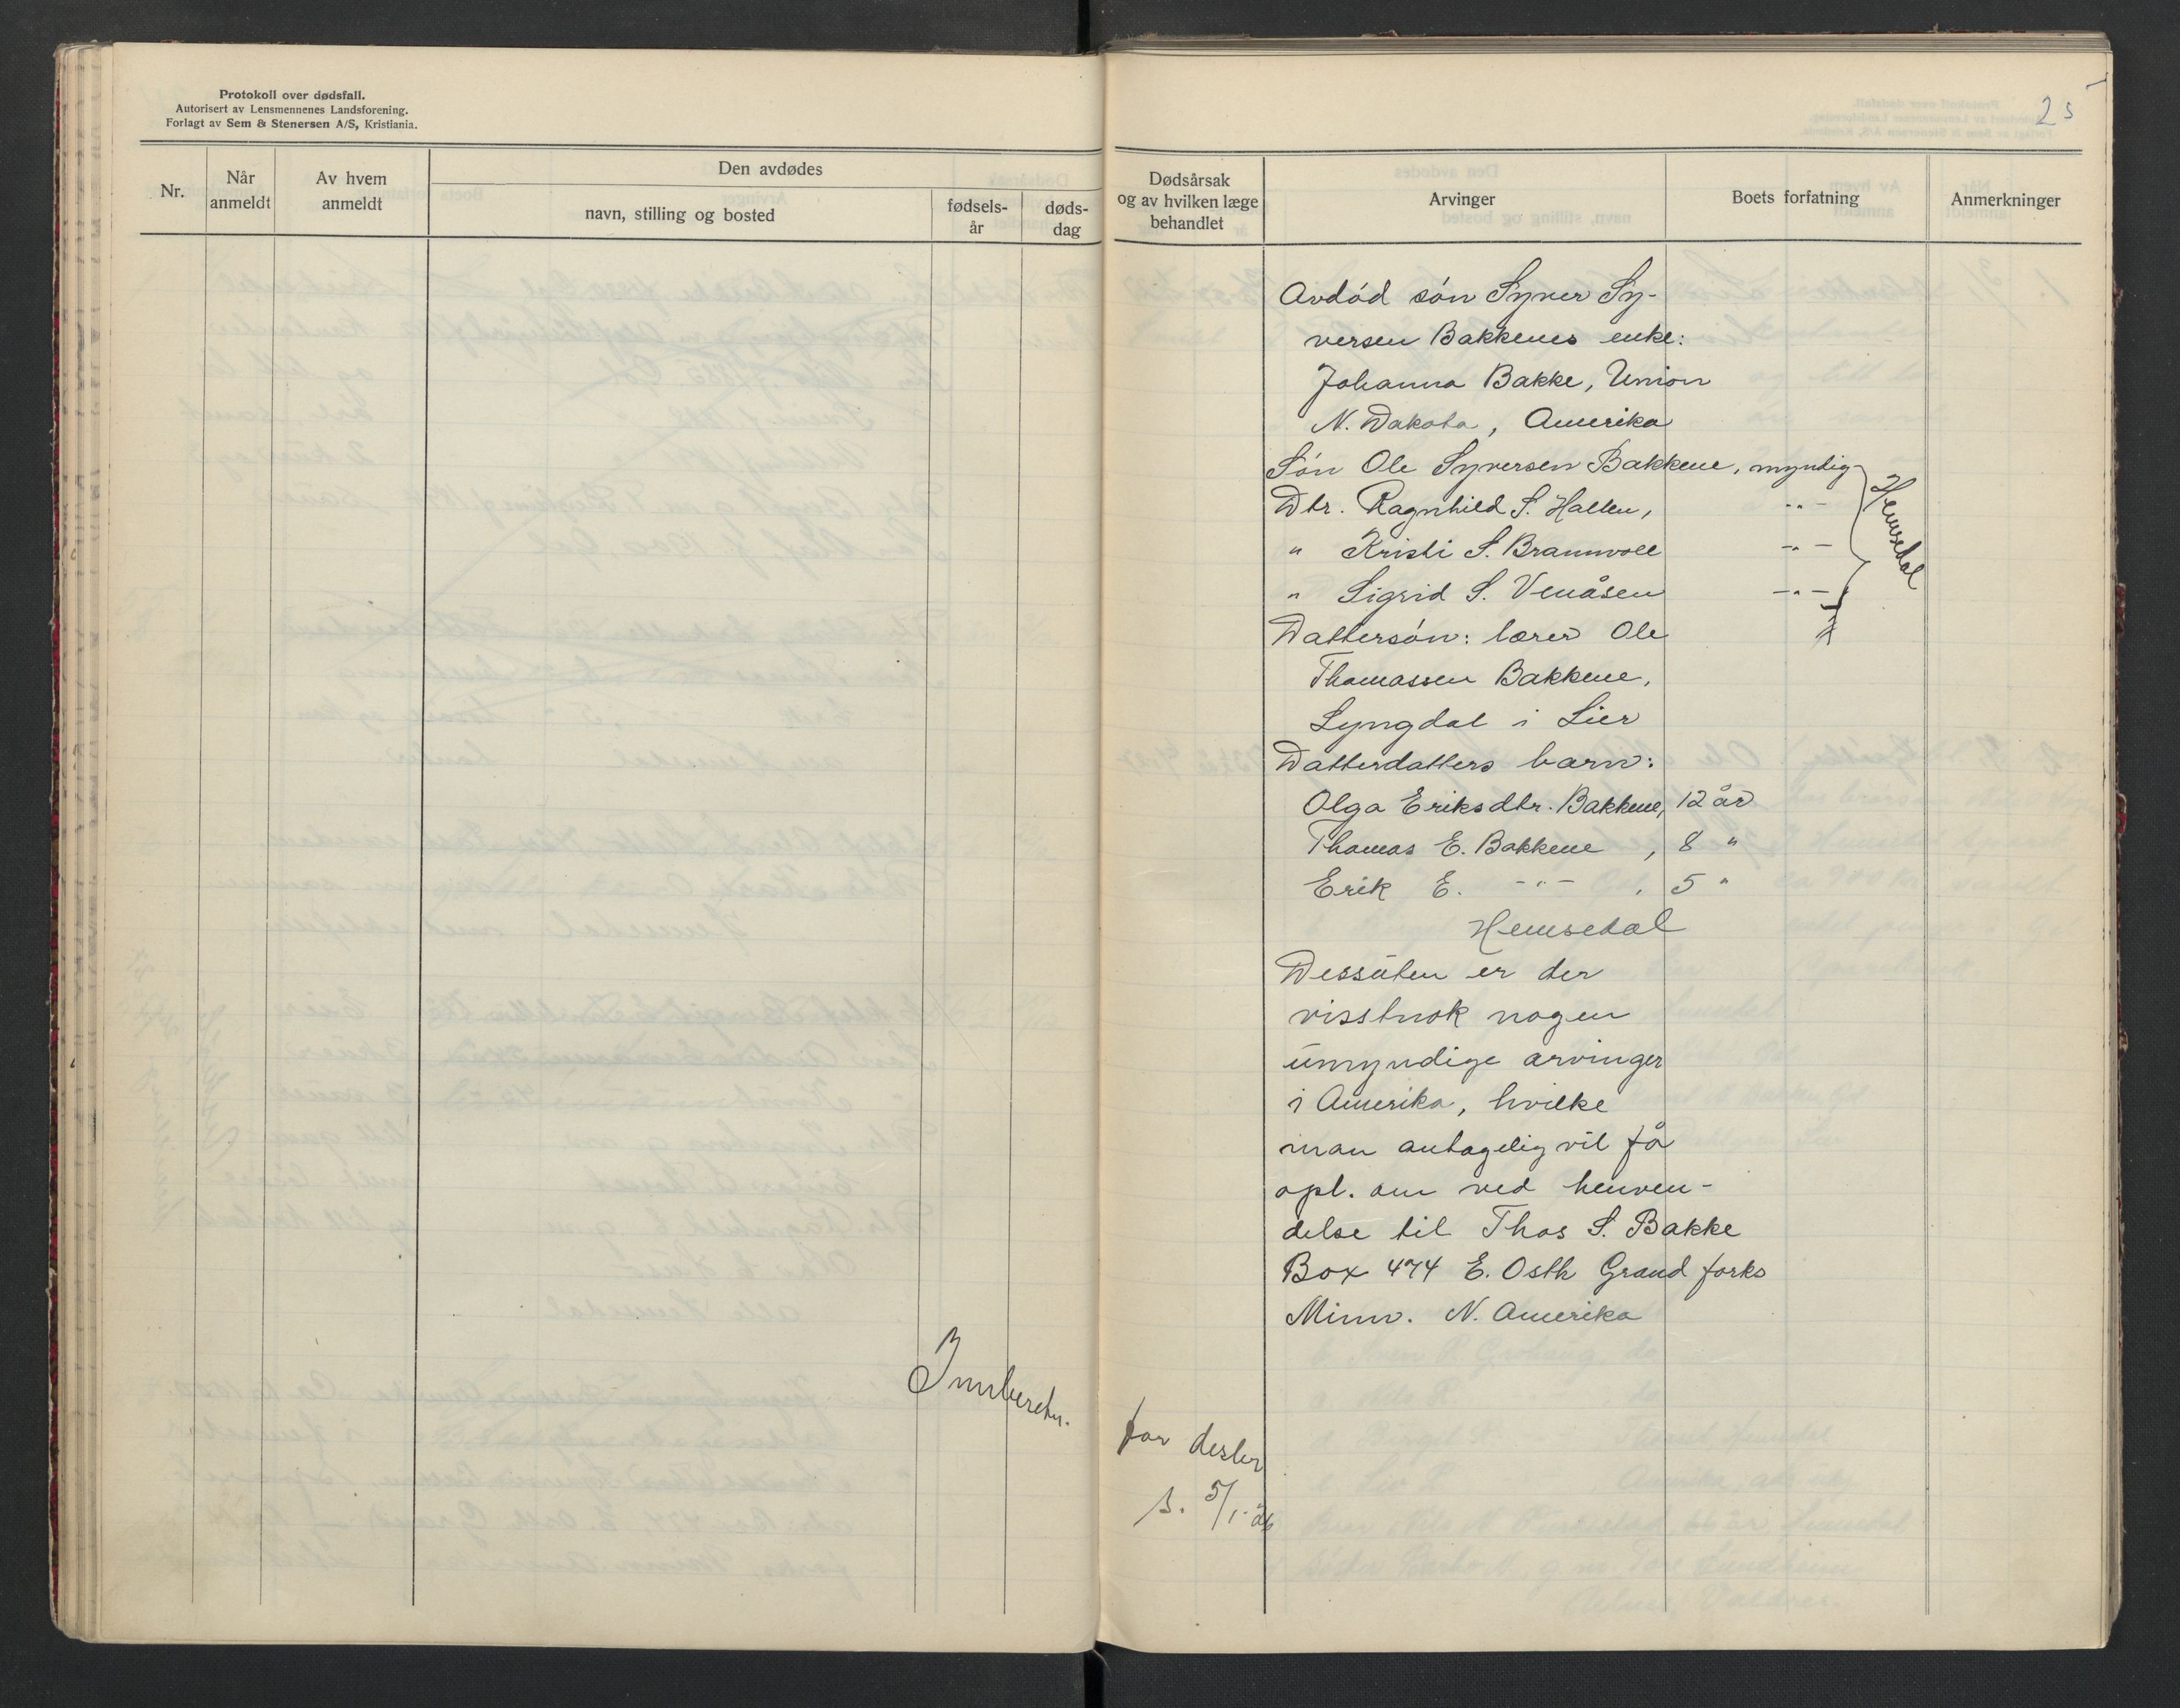 Protokoll over dødsfall.
Autorisert av Lensmennenes Landsforening.
Forlagt av Sem & Stenersen A/S, Kristiania.
25
Nr.
Når anmeldt
Av hvem anmeldt
Den avdødes
navn, stilling og bosted
fødselsår
dødsdag
Dødsårsak og av hvilken læge behandlet
Arvinger
Boets forfatning
Anmerkninger
Avdöd sön Syver Sy-
versen Bakkenes enke:
Johanna Bakke, Union
N. Dakota, Amerika
Sön Ole Syversen Bakkene, myndig
Dtr. Ragnhild S. Halten, -"-
" Kristi S. Brannvoll -"-
" Sigrid S. Venåsen -"-
Hemsedal
Dattersön: lærer Ole
Thomassen Bakkene,
Lyngdal i Lier
Datterdatters barn:
Olga Eriksdtr. Bakkene, 12 år
Thomas E. Bakkene, 8 "
Erik E. -"-, 5 "
Hemsedal
Dessuten er der
visstnok nogen
umyndige arvinger
i Amerika, hvilke
man antagelig vil få
opl. om ved henven-
delse til Thos S. Bakke
Box 474 E. Osth Grand forks
Minn. N. Amerika
Innberetn.
for desbr
s. 5/1-26